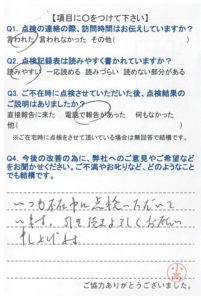 【項目に○をつけて下さい】
Q1. 点検の連絡の際、訪問時間はお伝えしていますか？
言われた 言われなかった その他(
Q2. 点検記録表は読みやすく書かれていますか？
読みやすい 一応読める 読みづらい 読めない部分がある
Q3. ご不在時に点検させていただいた後、点検結果の
ご説明はありましたか？
直接報告に来た 電話で報告があった 何もなかった
他(
※ご在宅時に点検をさせて頂いている場合は無回答で結構です。
Q4. 今後の改善の為に、弊社へのご意見やご希望など
をお聞かせください。ご不満やお叱りなど、どのようなことでも
結構です。
いつも不在中に点検いただいて
います。引き続きよろしくお願い
申し上げます。
小高
ご協力ありがとうございました。